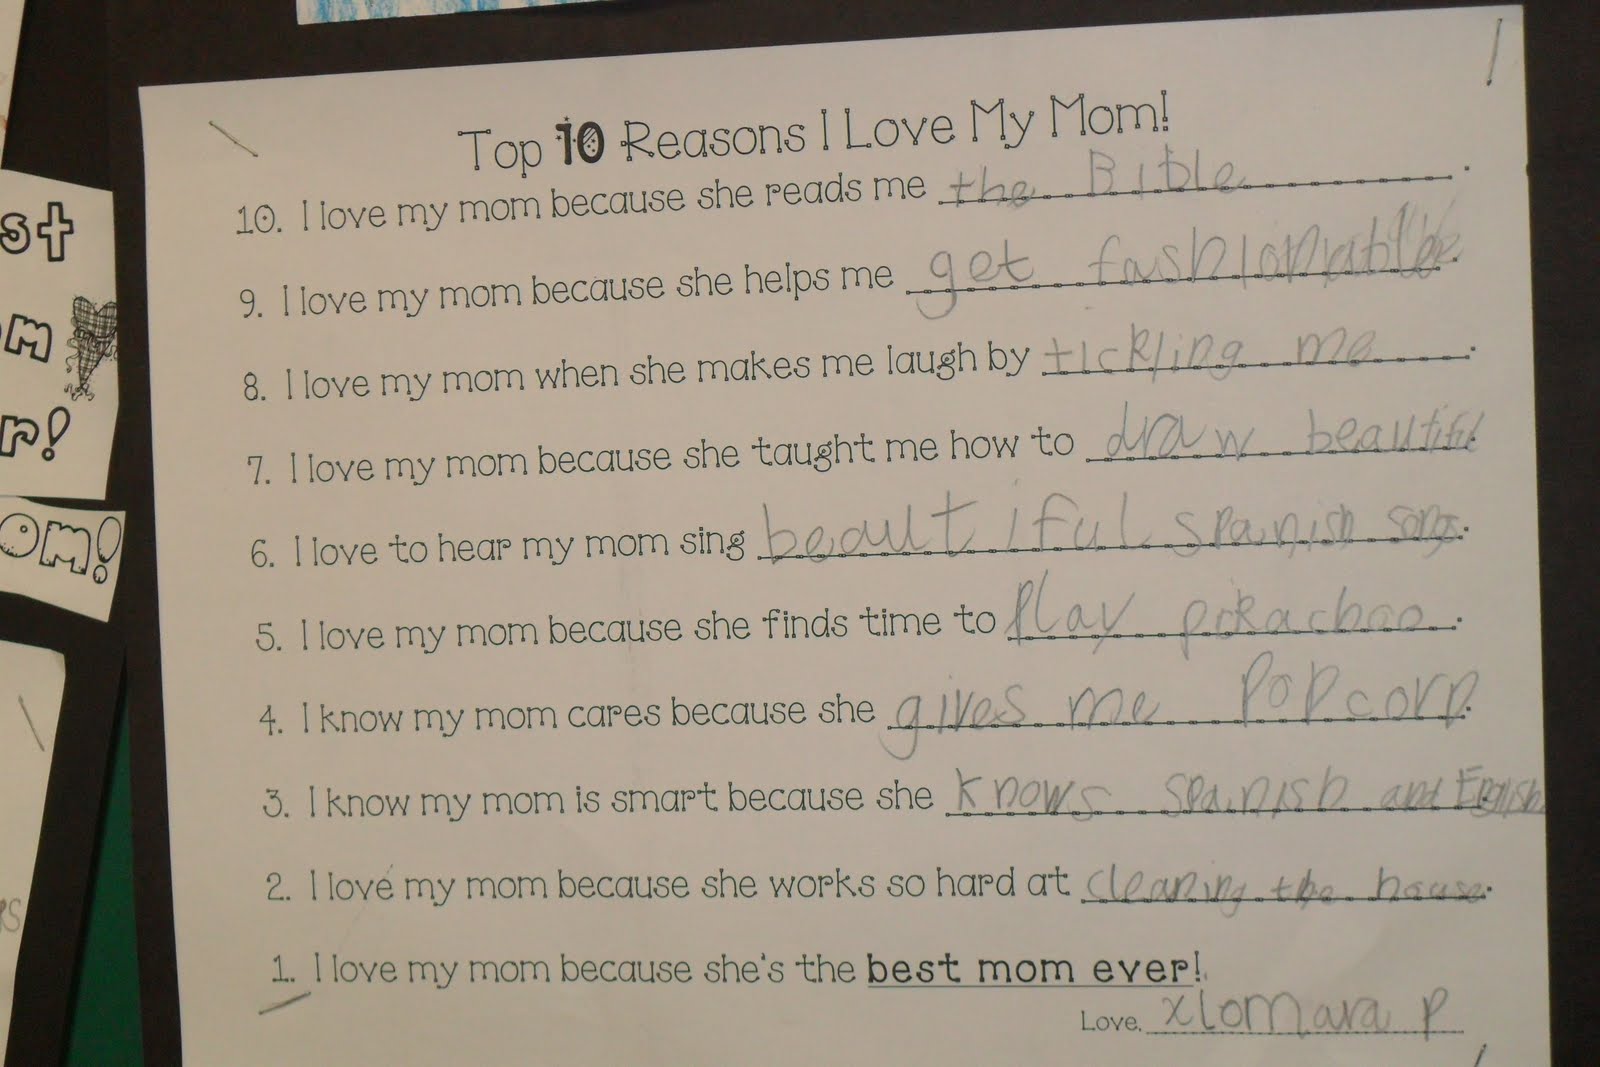 Top 10 Reasons I Love My Mom!
10. I love my mom because she reads me the Bible.
9. I love my mom because she helps me get fashionable.
8. I love my mom when she makes me laugh by tickling me.
7. I love my mom because she taught me how to draw beautiful.
6. I love to hear my mom sing beautiful spanish songs.
5. I love my mom because she finds time to play pokachoo.
4. I know my mom cares because she gives me popcorn.
3. I know my mom is smart because she knows spanish and English
2. I love my mom because she works so hard at cleaning the house.
1. I love my mom because she's the best mom ever!
Love, xiomara p
st
m
r!
om!